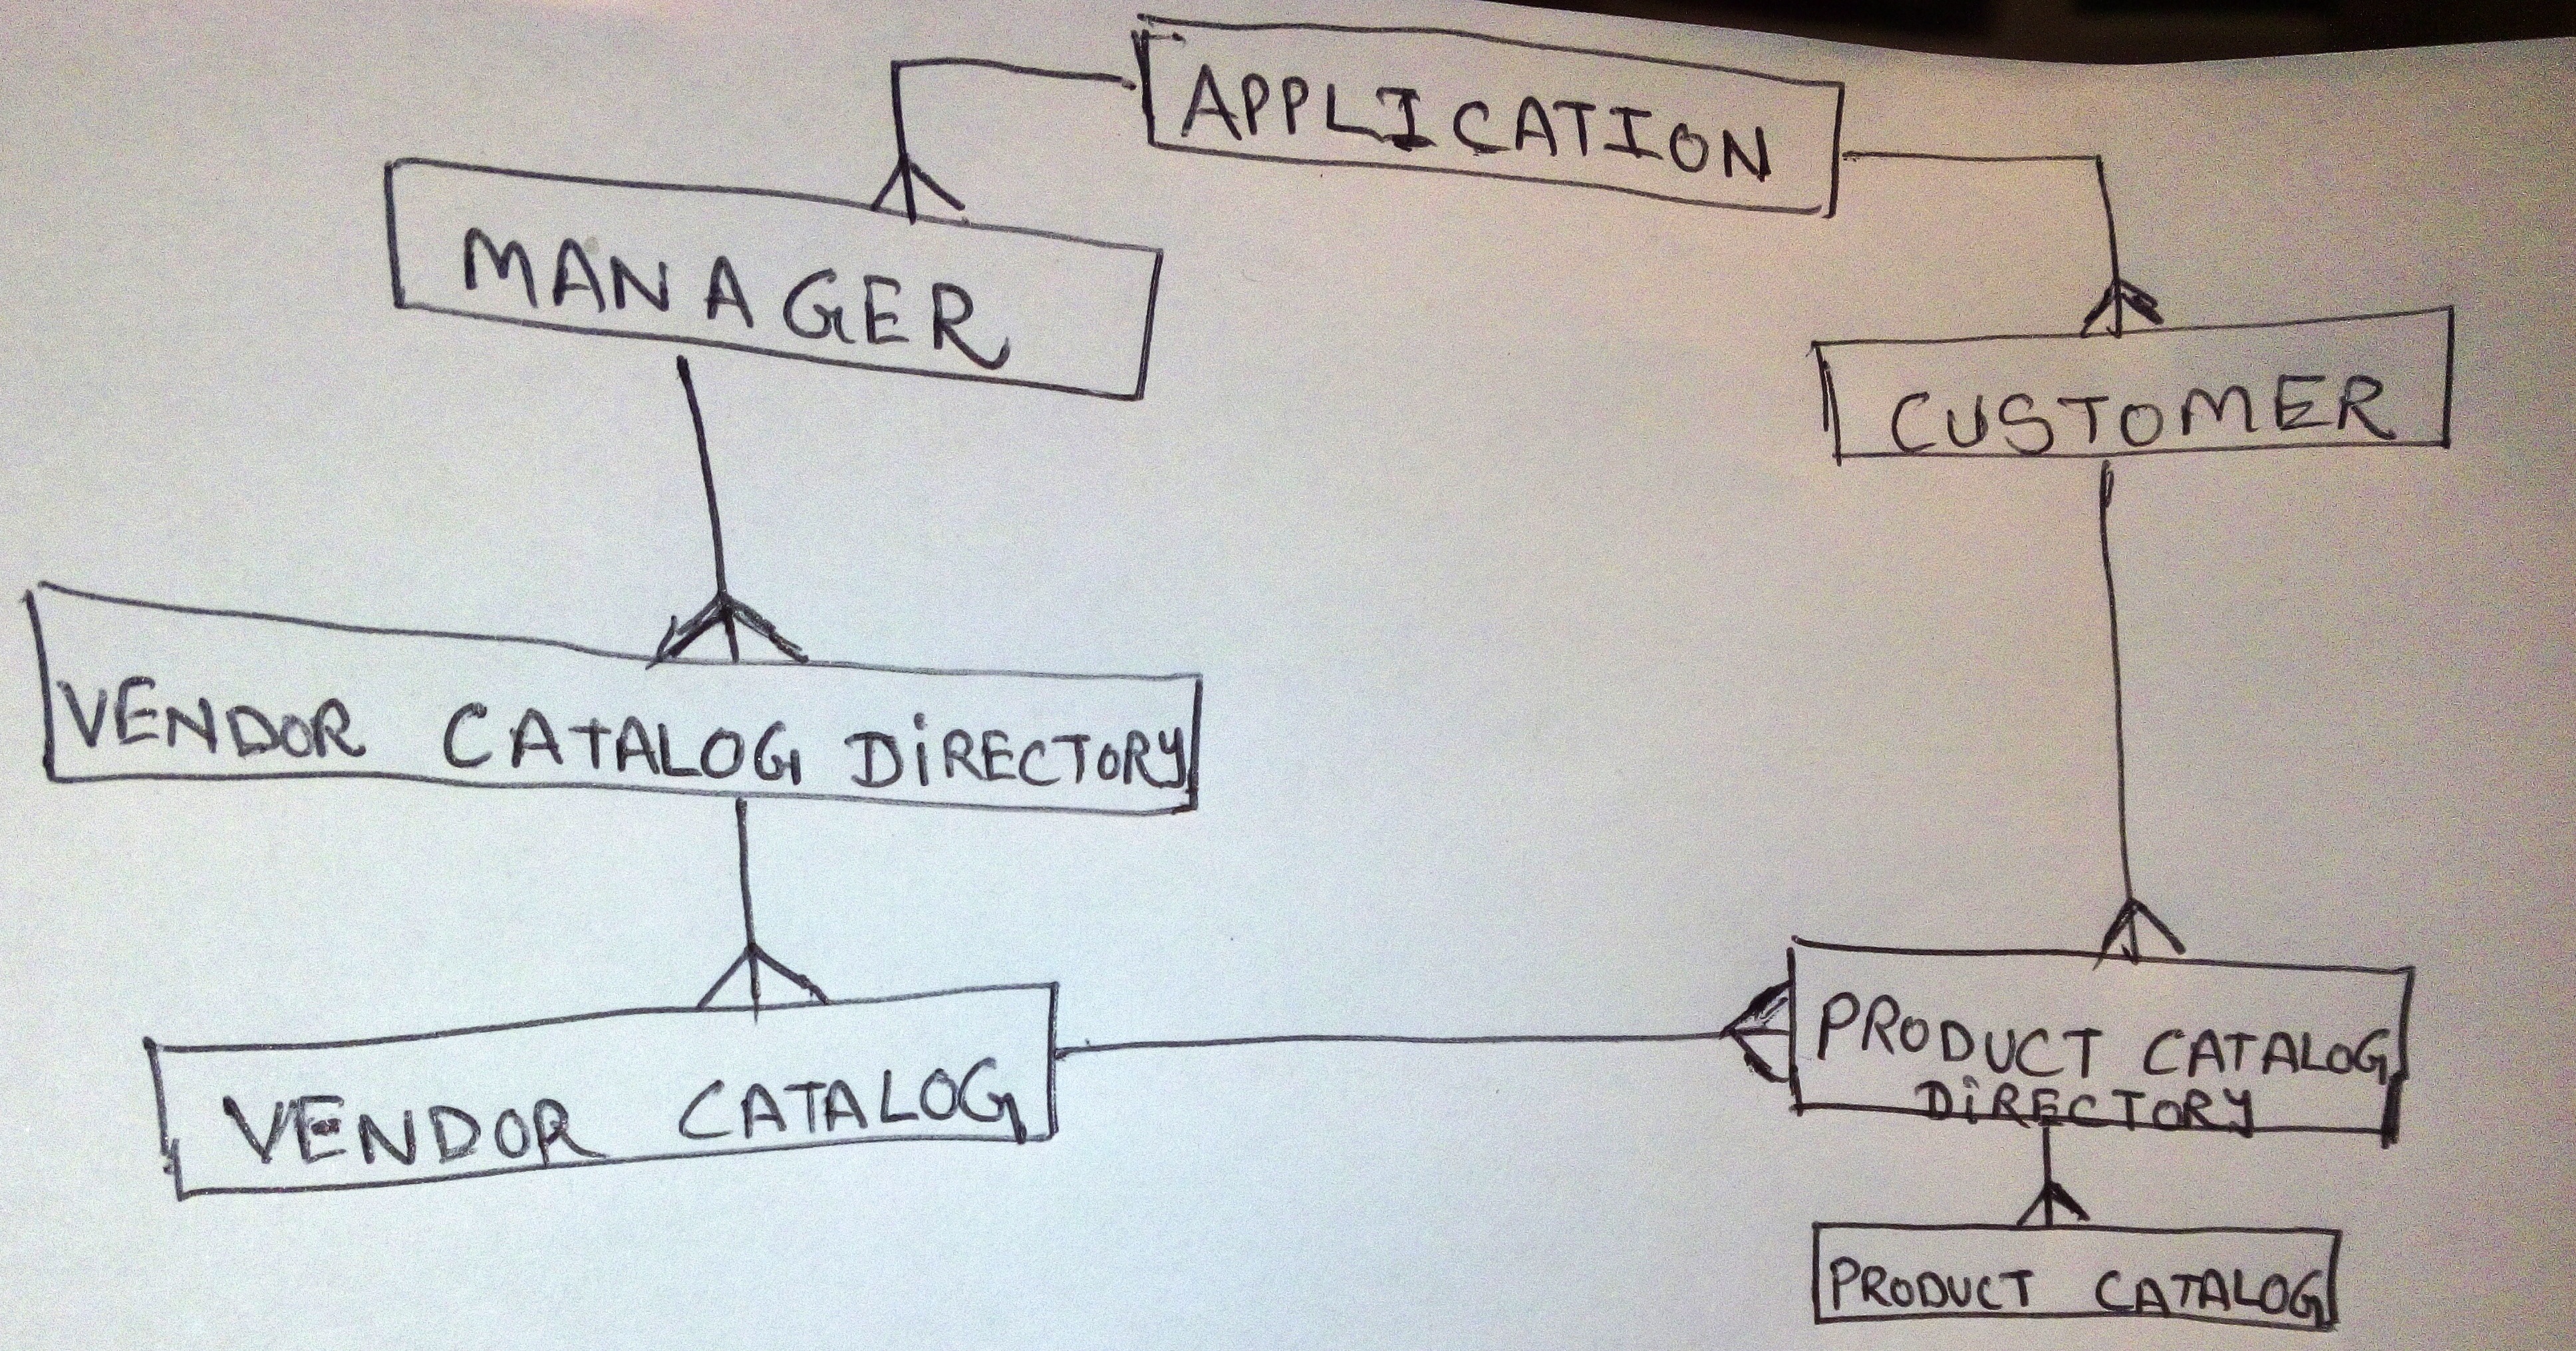 APPLICATION
MANAGER
CUSTOMER
VENDOR CATALOG DiRECTORY
VENDOR CATALOG
PRODUCT CATALOG
DiRECTORY
PRODUCT CATALOG